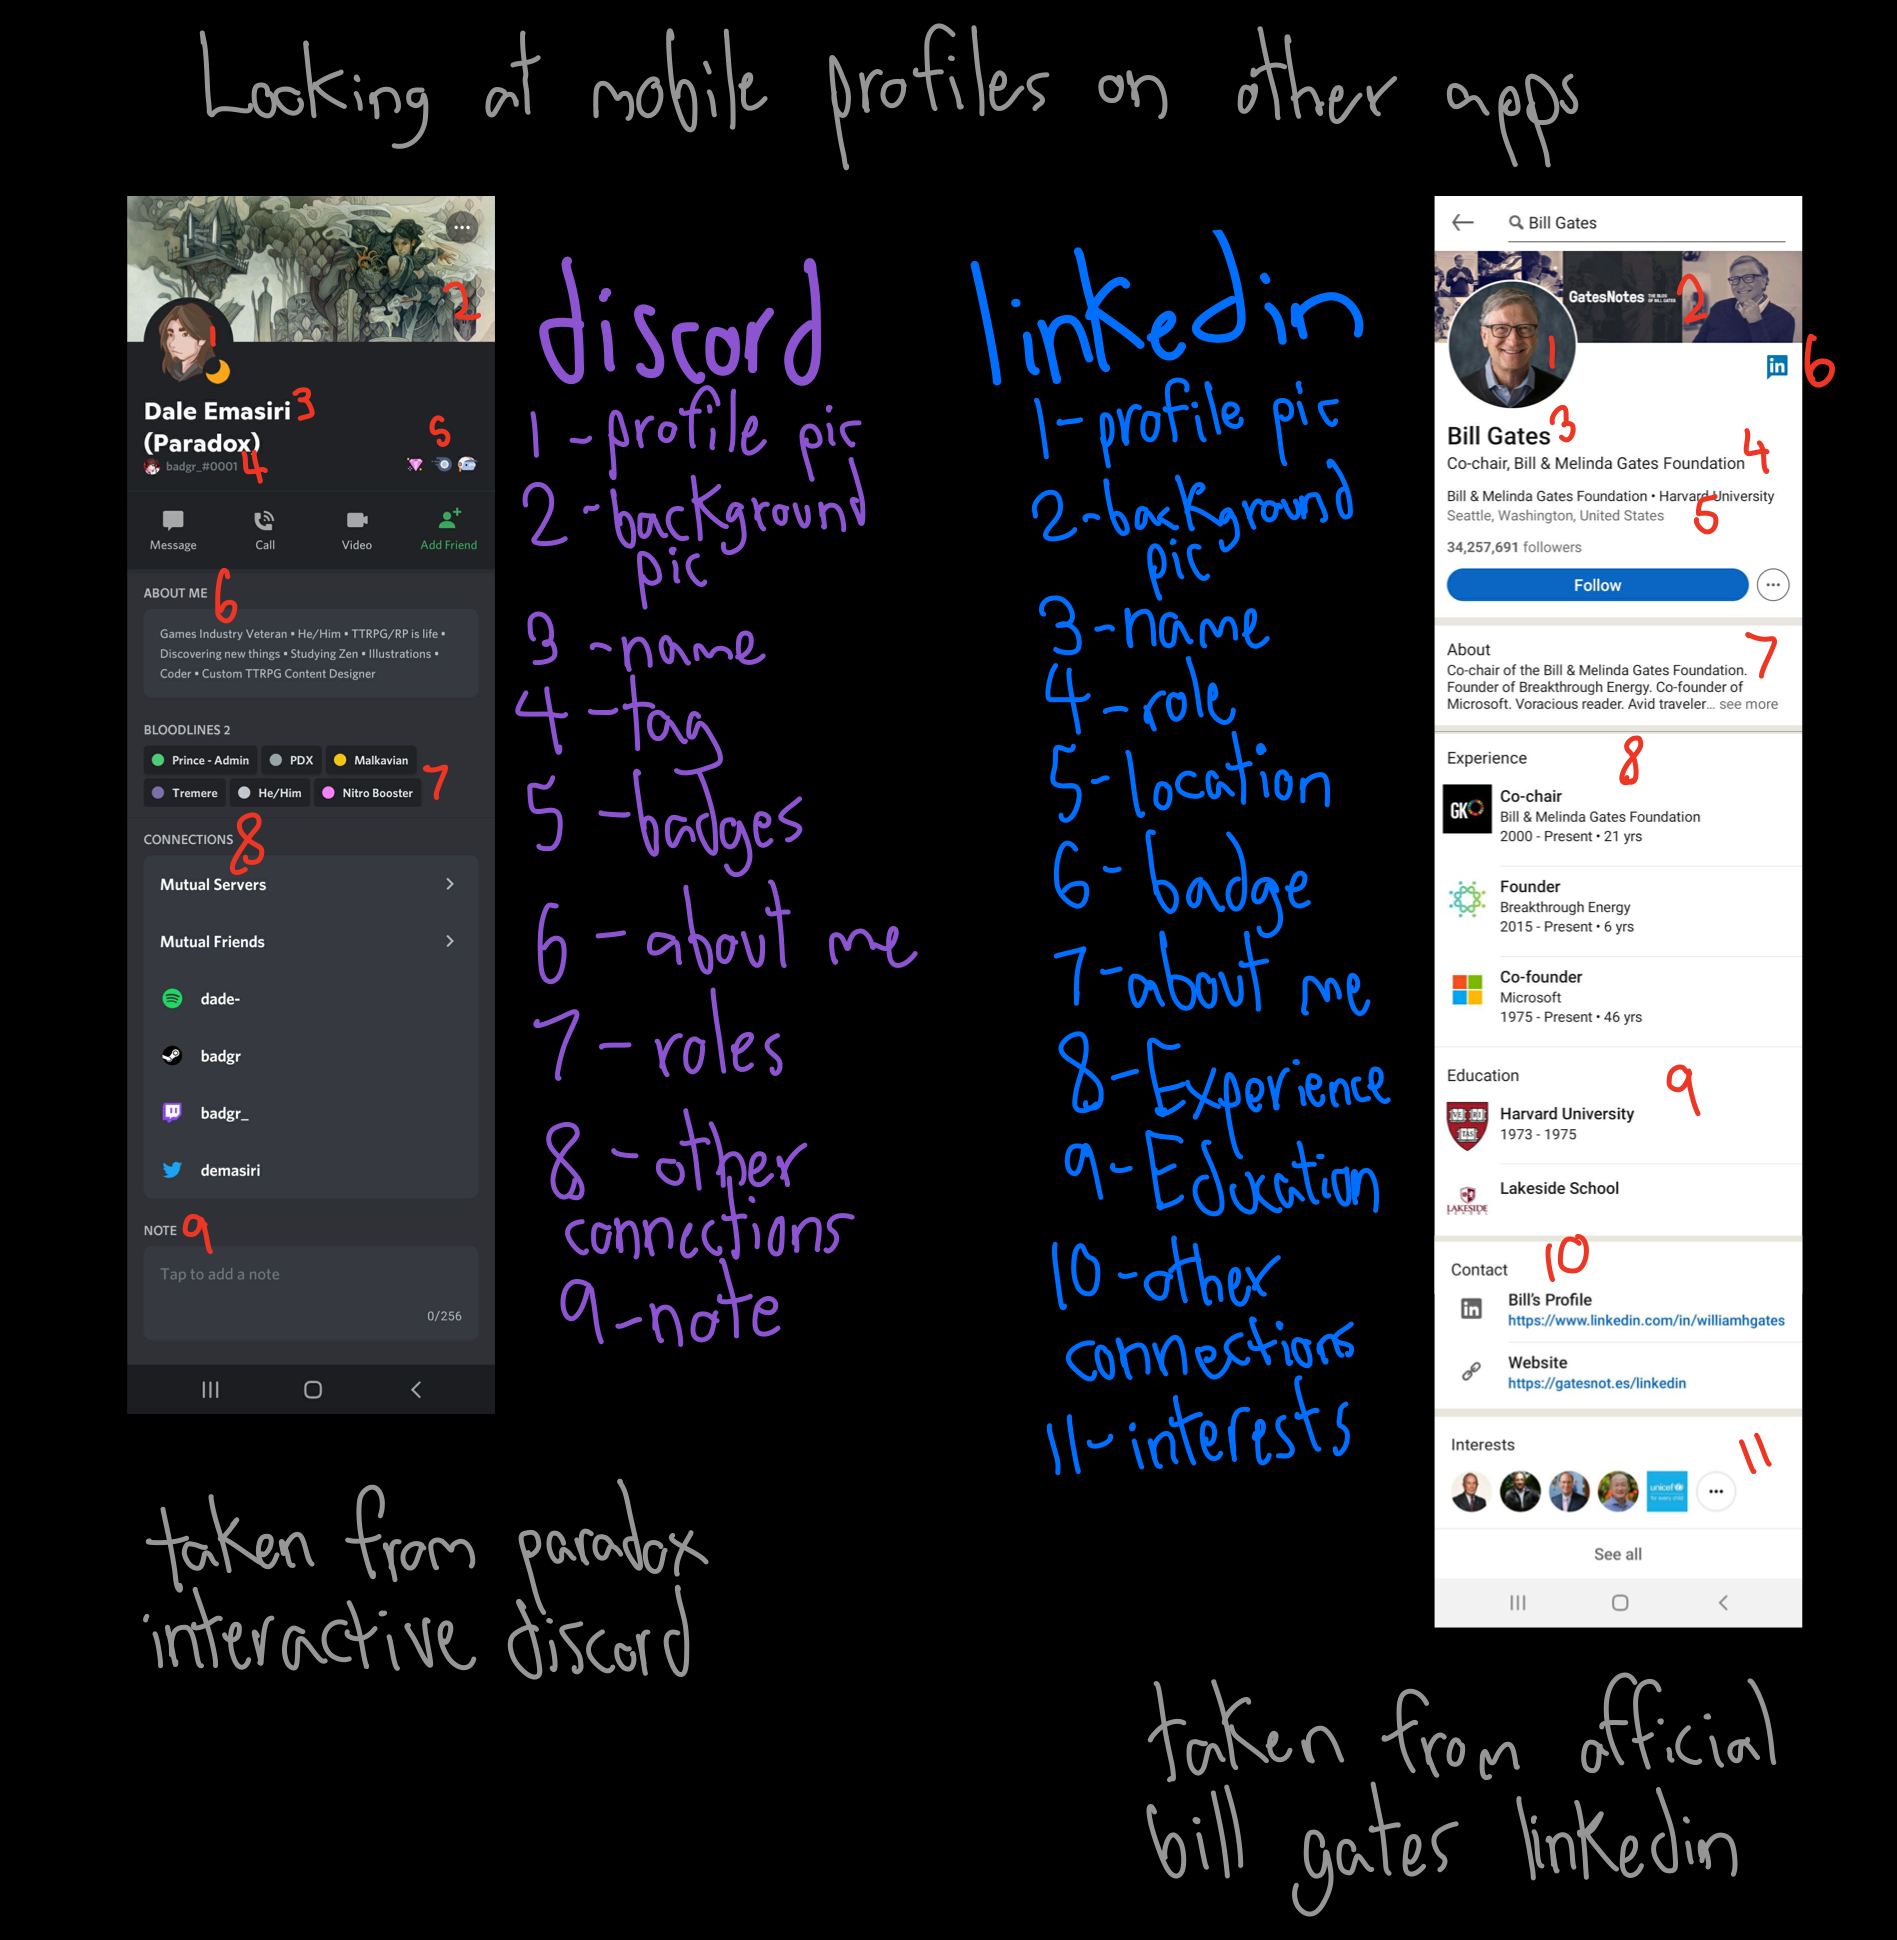 Looking at mobile profiles on other apps
2
1
Dale Emasiri 3
(Paradox)
badgr_#0001 4
5
Message
Call
Video
Add Friend
ABOUT ME 6
Games Industry Veteran • He/Him • TTRPG/RP is life •
Discovering new things • Studying Zen • Illustrations •
Coder • Custom TTRPG Content Designer
BLOODLINES 2
Prince - Admin
PDX
Malkavian
7
Tremere
He/Him
Nitro Booster
CONNECTIONS 8
Mutual Servers
Mutual Friends
dade-
badgr
badgr_
demasiri
NOTE 9
Tap to add a note
0/256
taken from paradox
interactive discord
discord
1 - profile pic
2 - background
pic
3 - name
4 - tag
5 - badges
6 - about me
7 - roles
8 - other
connections
9 - note
linkedin
1 - profile pic
2 - background
pic
3 - name
4 - role
5 - location
6 - badge
7 - about me
8 - Experience
9 - Education
10 - other
connections
11 - interests
Bill Gates
GatesNotes THE BLOG OF BILL GATES
2
1
in
6
Bill Gates 3
Co-chair, Bill & Melinda Gates Foundation 4
Bill & Melinda Gates Foundation • Harvard University
Seattle, Washington, United States 5
34,257,691 followers
Follow
About 7
Co-chair of the Bill & Melinda Gates Foundation.
Founder of Breakthrough Energy. Co-founder of
Microsoft. Voracious reader. Avid traveler... see more
Experience 8
GK
Co-chair
Bill & Melinda Gates Foundation
2000 - Present • 21 yrs
Founder
Breakthrough Energy
2015 - Present • 6 yrs
Co-founder
Microsoft
1975 - Present • 46 yrs
Education 9
VE RI TAS
Harvard University
1973 - 1975
LAKESIDE
SCHOOL
Lakeside School
Contact 10
in
Bill's Profile
https://www.linkedin.com/in/williamhgates
Website
https://gatesnot.es/linkedin
Interests 11
unicef
for every child
See all
taken from official
bill gates linkedin